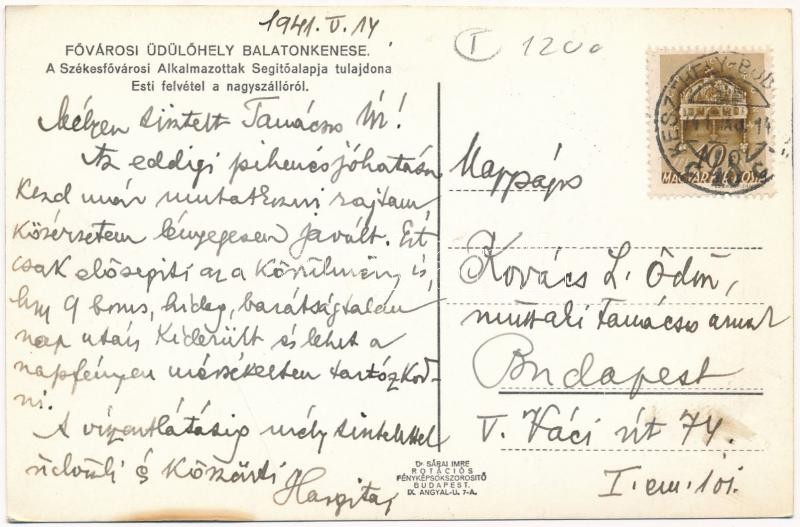 1941. V. 14
FŐVÁROSI ÜDÜLŐHELY BALATONKENESE.
A Székesfővárosi Alkalmazottak Segitőalapja tulajdona
Esti felvétel a nagyszállóról.
Mélyen tisztelt Tanácsos Úr!
Az eddigi pihenés jóhatása
kezd már mutatkozni rajtam
közérzetem lényegesen javált. Ezt
csak elősegiti az a körülmény is,
hogy 9 borus, hideg, barátságtalan
nap után kiderült és lehet a
napfényen mérsékelten tartózkod-
ni.
A viszontlátásig mély tisztelettel
üdvözli és köszönti
Hargitay
T 1200
KESZTHELY-BUD
10
MAGYAR POSTA
Nagyságos
Kovács L. Ödön,
műszaki Tanácsos urnak
Budapest
V. Váci út 74.
I. em. 101.
Dr SÁRAI IMRE
ROTÁCIÓS
FÉNYKÉPSOKSZOROSITÓ
BUDAPEST.
IX. ANGYAL-U. 7-A.